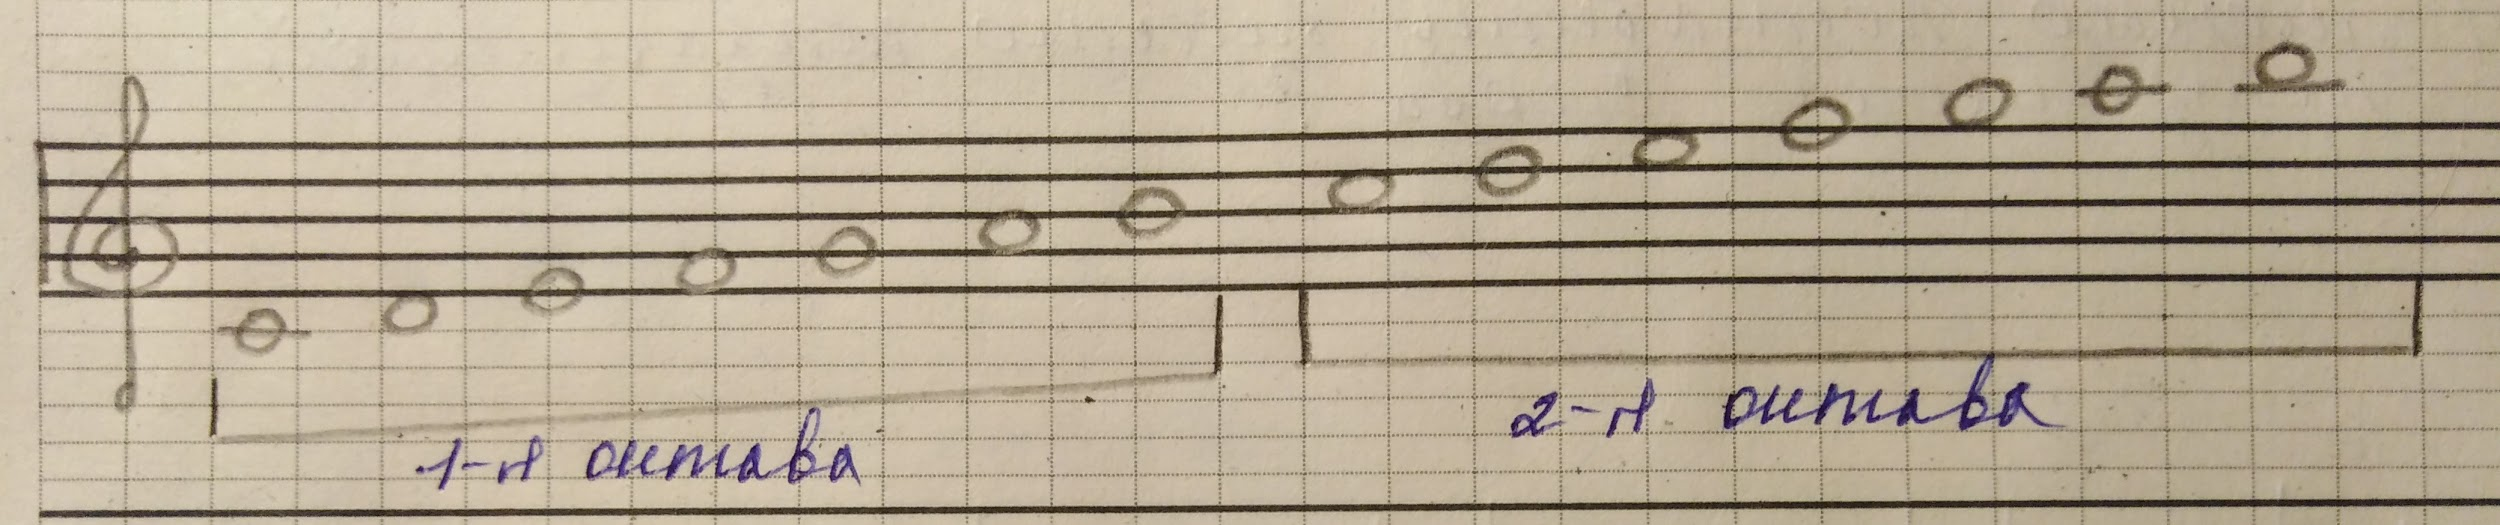 1-я октава
2-я октава